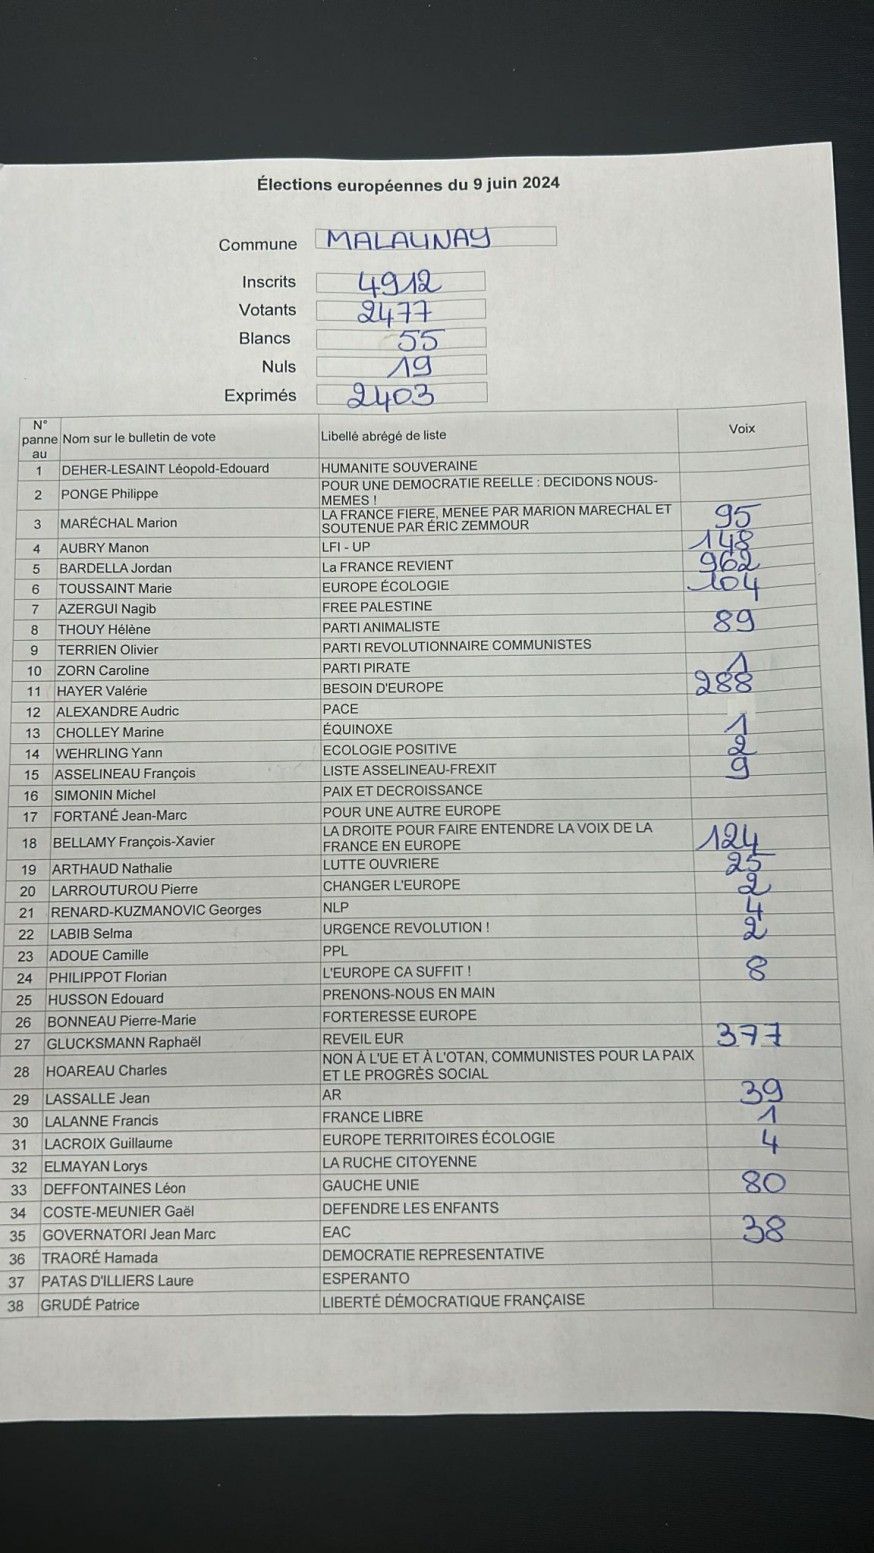 Élections européennes du 9 juin 2024
Commune MALAUNAY
Inscrits 4912
Votants 2477
Blancs 55
Nuls 19
Exprimés 2403
N° panneau Nom sur le bulletin de vote Libellé abrégé de liste Voix
1 DEHER-LESAINT Léopold-Edouard HUMANITE SOUVERAINE
2 PONGE Philippe POUR UNE DEMOCRATIE REELLE : DECIDONS NOUS-MEMES !
3 MARÉCHAL Marion LA FRANCE FIERE, MENEE PAR MARION MARECHAL ET SOUTENUE PAR ÉRIC ZEMMOUR 95
4 AUBRY Manon LFI - UP 148
5 BARDELLA Jordan La FRANCE REVIENT 962
6 TOUSSAINT Marie EUROPE ÉCOLOGIE 104
7 AZERGUI Nagib FREE PALESTINE
8 THOUY Hélène PARTI ANIMALISTE 89
9 TERRIEN Olivier PARTI REVOLUTIONNAIRE COMMUNISTES
10 ZORN Caroline PARTI PIRATE 1
11 HAYER Valérie BESOIN D'EUROPE 288
12 ALEXANDRE Audric PACE
13 CHOLLEY Marine ÉQUINOXE 1
14 WEHRLING Yann ECOLOGIE POSITIVE 2
15 ASSELINEAU François LISTE ASSELINEAU-FREXIT 9
16 SIMONIN Michel PAIX ET DECROISSANCE
17 FORTANÉ Jean-Marc POUR UNE AUTRE EUROPE
18 BELLAMY François-Xavier LA DROITE POUR FAIRE ENTENDRE LA VOIX DE LA FRANCE EN EUROPE 124
19 ARTHAUD Nathalie LUTTE OUVRIERE 25
20 LARROUTUROU Pierre CHANGER L'EUROPE 2
21 RENARD-KUZMANOVIC Georges NLP 4
22 LABIB Selma URGENCE REVOLUTION ! 2
23 ADOUE Camille PPL
24 PHILIPPOT Florian L'EUROPE CA SUFFIT ! 8
25 HUSSON Edouard PRENONS-NOUS EN MAIN
26 BONNEAU Pierre-Marie FORTERESSE EUROPE
27 GLUCKSMANN Raphaël REVEIL EUR 377
28 HOAREAU Charles NON À L'UE ET À L'OTAN, COMMUNISTES POUR LA PAIX ET LE PROGRÈS SOCIAL
29 LASSALLE Jean AR 39
30 LALANNE Francis FRANCE LIBRE 1
31 LACROIX Guillaume EUROPE TERRITOIRES ÉCOLOGIE 4
32 ELMAYAN Lorys LA RUCHE CITOYENNE
33 DEFFONTAINES Léon GAUCHE UNIE 80
34 COSTE-MEUNIER Gaël DEFENDRE LES ENFANTS
35 GOVERNATORI Jean Marc EAC 38
36 TRAORÉ Hamada DEMOCRATIE REPRESENTATIVE
37 PATAS D'ILLIERS Laure ESPERANTO
38 GRUDÉ Patrice LIBERTÉ DÉMOCRATIQUE FRANÇAISE